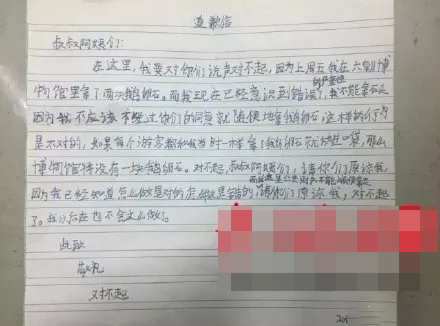 道歉信
叔叔阿姨们：
在这里，我要对你们说声对不起，因为上周五我在六朝博
物馆里拿了两块鹅卵石。而我现在已经意识到错误的严重性了，我不能拿石头
因为我不应该不经过你们的同意就随便地拿鹅卵石，这样的行为
是不对的，如果每个游客都和我当时一样拿了鹅卵石就放进口袋，那么
博物馆将没有一块鹅卵石。对不起，叔叔阿姨们，请你们原谅我，
因为我已经知道怎么做是对的怎么做是错的，请你们原谅我，对不起
了。我以后在也不会这么做了。
此致
敬礼
对不起
201